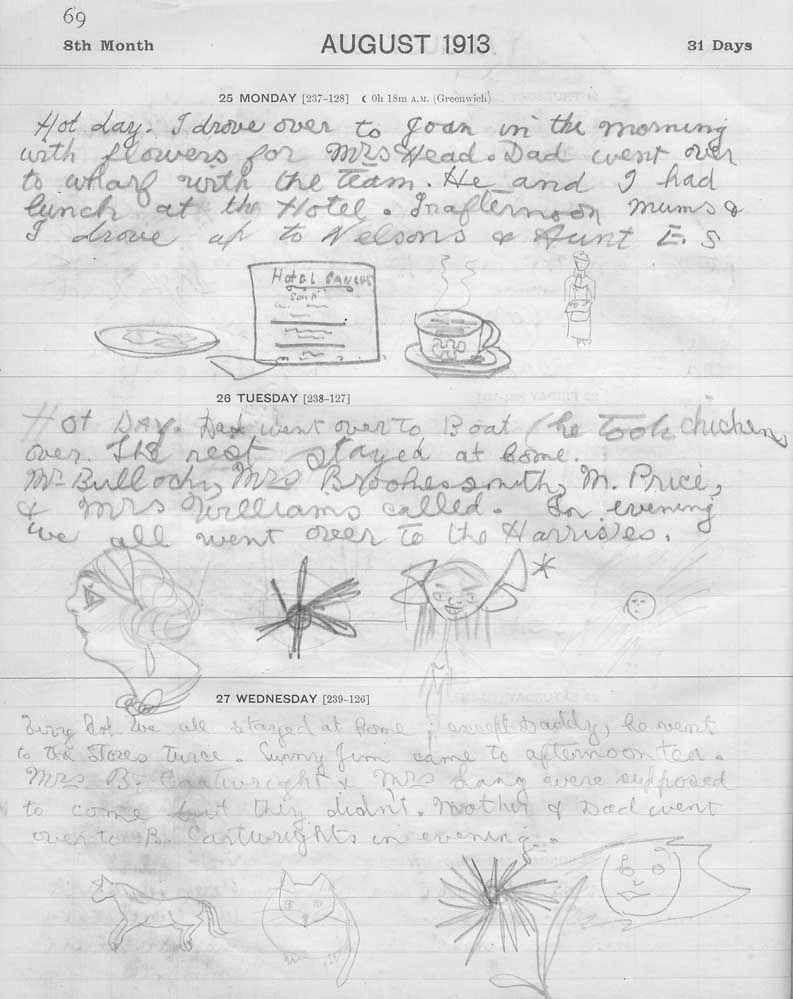 69
8th Month AUGUST 1913 31 Days
25 MONDAY [237-128] ☾ 0h 18m A.M. (Greenwich)
Hot day. I drove over to Joan in the morning
with flowers for Mrs Head. Dad went over
to wharf with the team. He and I had
lunch at the Hotel. In afternoon Mums &
I drove up to Nelsons & Aunt E. S
Hotel
Soup
26 TUESDAY [238-127]
Hot DAY. Dad went over to Boat (he took chickens
over. The rest stayed at home.
Mr Bulloch, Mrs Brookesmith, M. Price,
& Mrs Williams called. In evening
we all went over to the Harrises.
27 WEDNESDAY [239-126]
Very hot we all stayed at home except Daddy, he went
to the Stores twice. Sunny Jim came to afternoon tea.
Mrs B. Cartwright & Mrs Lang were supposed
to come but they didnt. Mother & Dad went
over to B. Cartwrights in evening.